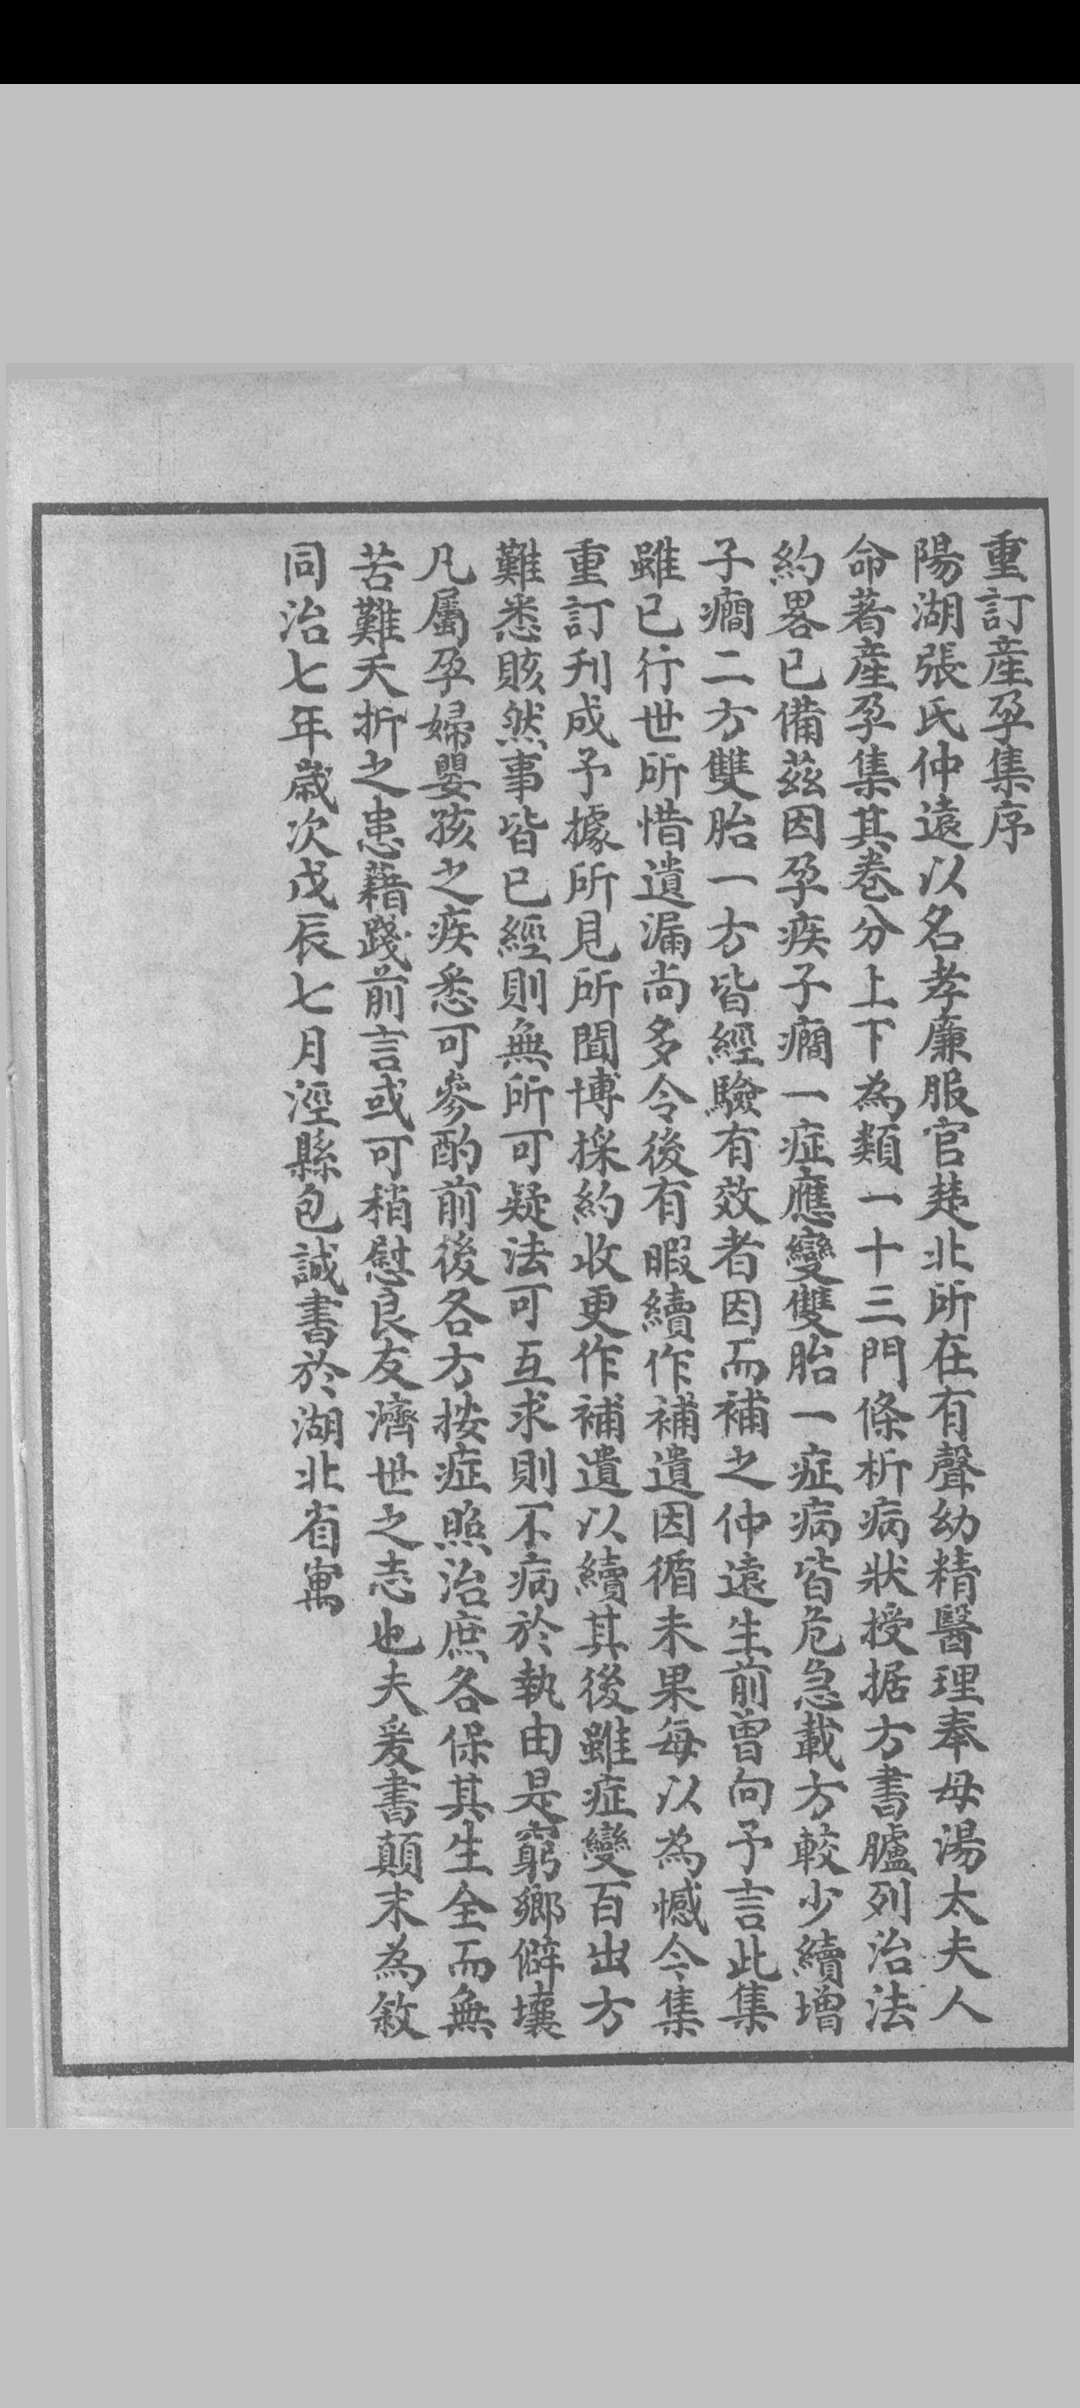 重訂産孕集序
陽湖張氏仲遠以名孝廉服官楚北所在有聲幼精醫理奉母湯太夫人
命著産孕集其卷分上下為類一十三門條析病狀授据方書臚列治法
約畧已備茲因孕疾子癇一症應變雙胎一症病皆危急載方較少續增
子癇二方雙胎一方皆經驗有效者因而補之仲遠生前曽向予言此集
雖已行世所惜遺漏尚多令後有暇續作補遺因循未果每以為憾今集
重訂刋成予據所見所聞博採約收更作補遺以續其後雖症變百出方
難悉賅然事皆已經則無所可疑法可互求則不病於執由是窮鄉僻壤
凡屬孕婦嬰孩之疾悉可參酌前後各方按症照治庶各保其生全而無
苦難夭折之患藉踐前言或可稍慰良友濟世之志也夫爰書顛末為敘
同治七年歲次戊辰七月涇縣包誠書於湖北省寓